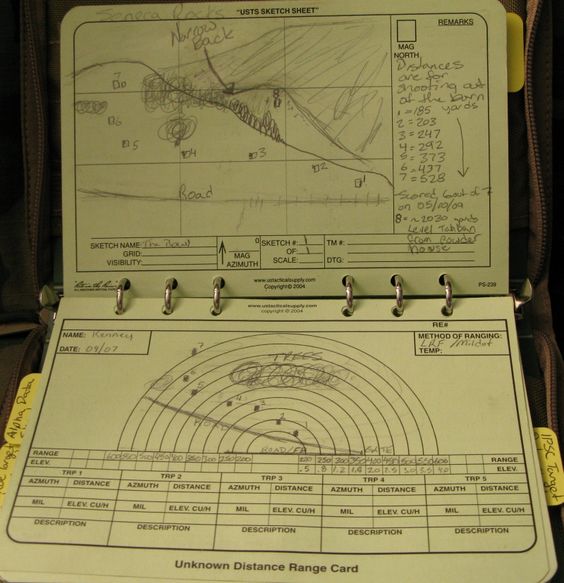 "USTS SKETCH SHEET"
Seneca Rocks
Narrow
Back
REMARKS
MAG
NORTH
Distances
are for
shooting out
of the barn
1 = 185 yards
2 = 203
3 = 247
4 = 292
5 = 373
6 = 437
7 = 528
Scored 6 out of 7
on 05/10/09
8 = ~2030 yards
Level
from Powder
house
7
6
5
4
3
2
1
8
Road
SKETCH NAME: The Bowl
GRID:
VISIBILITY:
MAG
AZIMUTH
0
SKETCH #: 1
OF: 1
SCALE:
TM #:
DTG:
www.ustacticalsupply.com
Copyright© 2004
PS-239
www.ustacticalsupply.com
Copyright© 2004
NAME: Kenney
DATE: 09/07
RE#
METHOD OF RANGING:
LRF / Mildot
TEMP:
TREES
7
6
5
4
3
2
1
ROAD
GATE
RANGE
600 550 500 450 400 350 300 250 200
200 250 300 350 400 450 500 550 600
RANGE
ELEV.
.5 .8 1.2 1.6 2.0 2.5 3.0 3.5 4.0
ELEV.
TRP 1 TRP 2 TRP 3 TRP 4 TRP 5
AZIMUTH DISTANCE AZIMUTH DISTANCE AZIMUTH DISTANCE AZIMUTH DISTANCE AZIMUTH DISTANCE
MIL ELEV. CU/H MIL ELEV. CU/H MIL ELEV. CU/H MIL ELEV. CU/H MIL ELEV. CU/H
DESCRIPTION DESCRIPTION DESCRIPTION DESCRIPTION DESCRIPTION
Unknown Distance Range Card
Alpha Data
IPSC Target